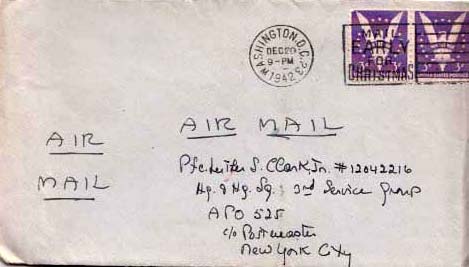 WASHINGTON, D.C. 23
DEC 20
9-PM
1942
MAIL
EARLY
FOR
CHRISTMAS
UNITED STATES POSTAGE
AIR MAIL
AIR
MAIL
Pfc. Luther S. Clark, Jr. #12042216
Hq. & Hq. Sq. 3rd Service Group
APO 525
c/o Postmaster
New York City